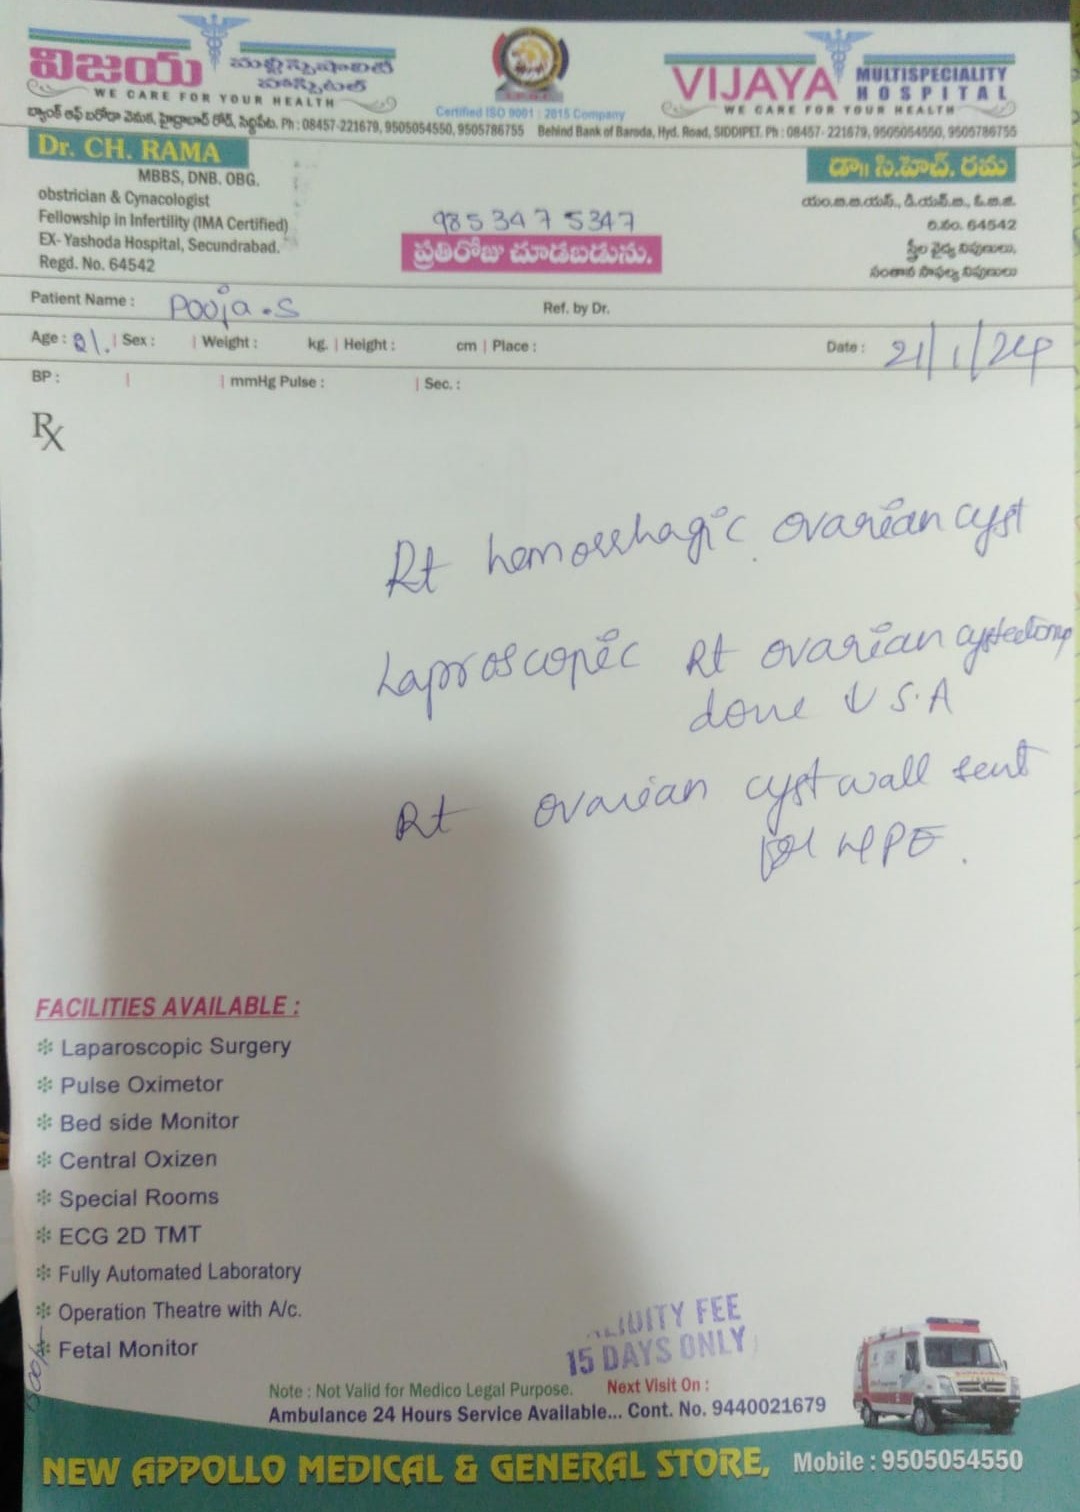 విజయ
మల్టీస్పెషాలిటీ
హాస్పిటల్
WE CARE FOR YOUR HEALTH
బ్యాంక్ ఆఫ్ బరోడా వెనుక, హైద్రాబాద్ రోడ్, సిద్దిపేట. Ph : 08457-221679, 9505054550, 9505786755
Certified ISO 9001 : 2015 Company
VIJAYA MULTISPECIALITY
HOSPITAL
WE CARE FOR YOUR HEALTH
Behind Bank of Baroda, Hyd. Road, SIDDIPET. Ph : 08457- 221679, 9505054550, 9505786755
Dr. CH. RAMA
MBBS, DNB. OBG.
obstrician & Cynacologist
Fellowship in Infertility (IMA Certified)
EX- Yashoda Hospital, Secundrabad.
Regd. No. 64542
9853475347
ప్రతిరోజు చూడబడును.
డా॥ సి.హెచ్. రమ
యం.బి.బి.యస్., డి.యన్.బి., ఓ.బి.జి.
రి.నం. 64542
స్త్రీల వైద్య నిపుణులు,
సంతాన సాఫల్య నిపుణులు
Patient Name : Pooja.S Ref. by Dr.
Age : 21. | Sex : | Weight : kg. | Height : cm | Place : Date : 21/1/24
BP : | | mmHg Pulse : | Sec. :
Rx
Rt hemorrhagic ovarian cyst
Laproscopic Rt ovarian cystectomy
done ↓ S.A
Rt ovarian cyst wall sent
for HPE.
FACILITIES AVAILABLE :
Laparoscopic Surgery
Pulse Oximetor
Bed side Monitor
Central Oxizen
Special Rooms
ECG 2D TMT
Fully Automated Laboratory
Operation Theatre with A/c.
Fetal Monitor
FEE
15 DAYS ONLY
Note : Not Valid for Medico Legal Purpose. Next Visit On :
Ambulance 24 Hours Service Available... Cont. No. 9440021679
NEW APPOLLO MEDICAL & GENERAL STORE, Mobile : 9505054550